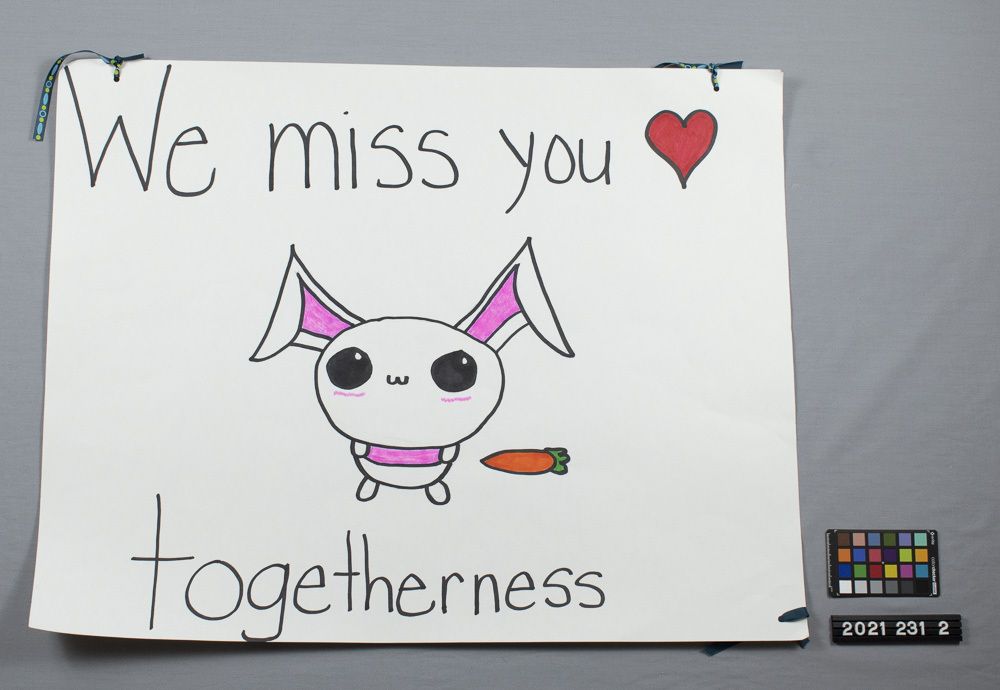 We miss you
togetherness
2021 231 2